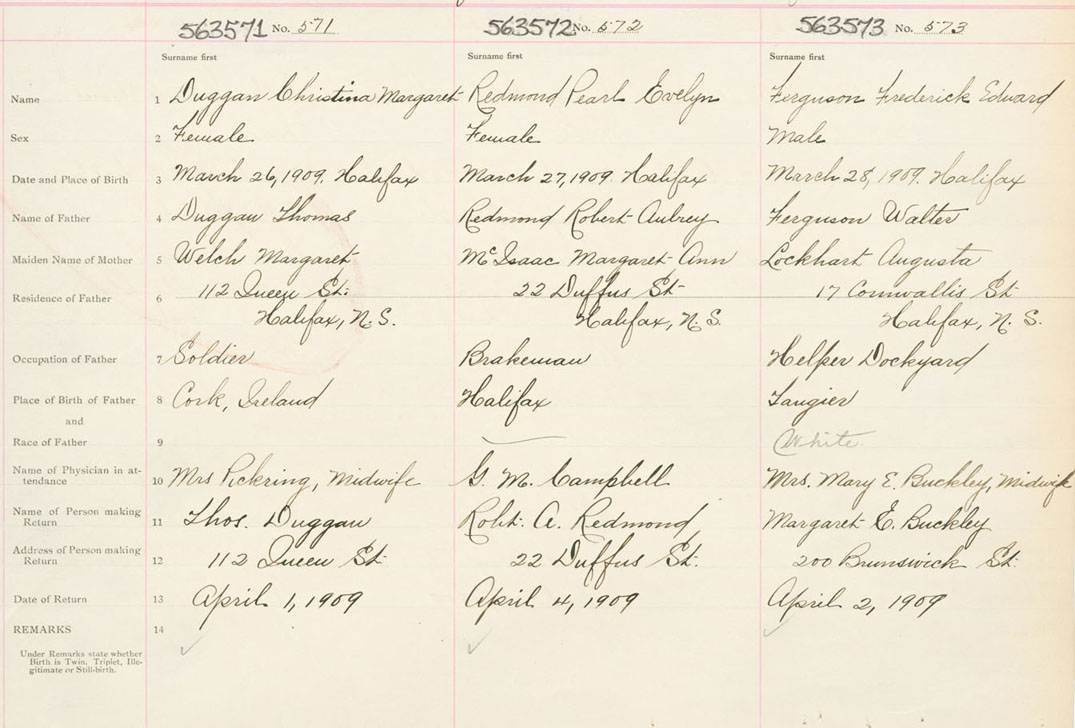 563571 No. 571 563572 No. 572 563573 No. 573
Surname first Surname first Surname first
Name 1 Duggan Christina Margaret Redmond Pearl Evelyn Ferguson Frederick Edward
Sex 2 Female Female Male
Date and Place of Birth 3 March 26, 1909. Halifax March 27, 1909. Halifax March 28, 1909. Halifax
Name of Father 4 Duggan Thomas Redmond Robert Aubrey Ferguson Walter
Maiden Name of Mother 5 Welch Margaret McIsaac Margaret Ann Lockhart Augusta
Residence of Father 6 112 Queen St. 22 Duffus St 17 Cornwallis St
Halifax, N.S. Halifax, N.S. Halifax, N.S.
Occupation of Father 7 Soldier Brakeman Helper Dockyard
Place of Birth of Father 8 Cork, Ireland Halifax Tangier
and
Race of Father 9 White
Name of Physician in at-
tendance 10 Mrs Pickering, Midwife G. M. Campbell Mrs. Mary E. Buckley, Midwife
Name of Person making
Return 11 Thos. Duggan Robt. A. Redmond Margaret E. Buckley
Address of Person making
Return 12 112 Queen St 22 Duffus St. 200 Brunswick St.
Date of Return 13 April 1, 1909 April 4, 1909 April 2, 1909
REMARKS 14
Under Remarks state whether
Birth is Twin, Triplet, Ille-
gitimate or Still-birth.